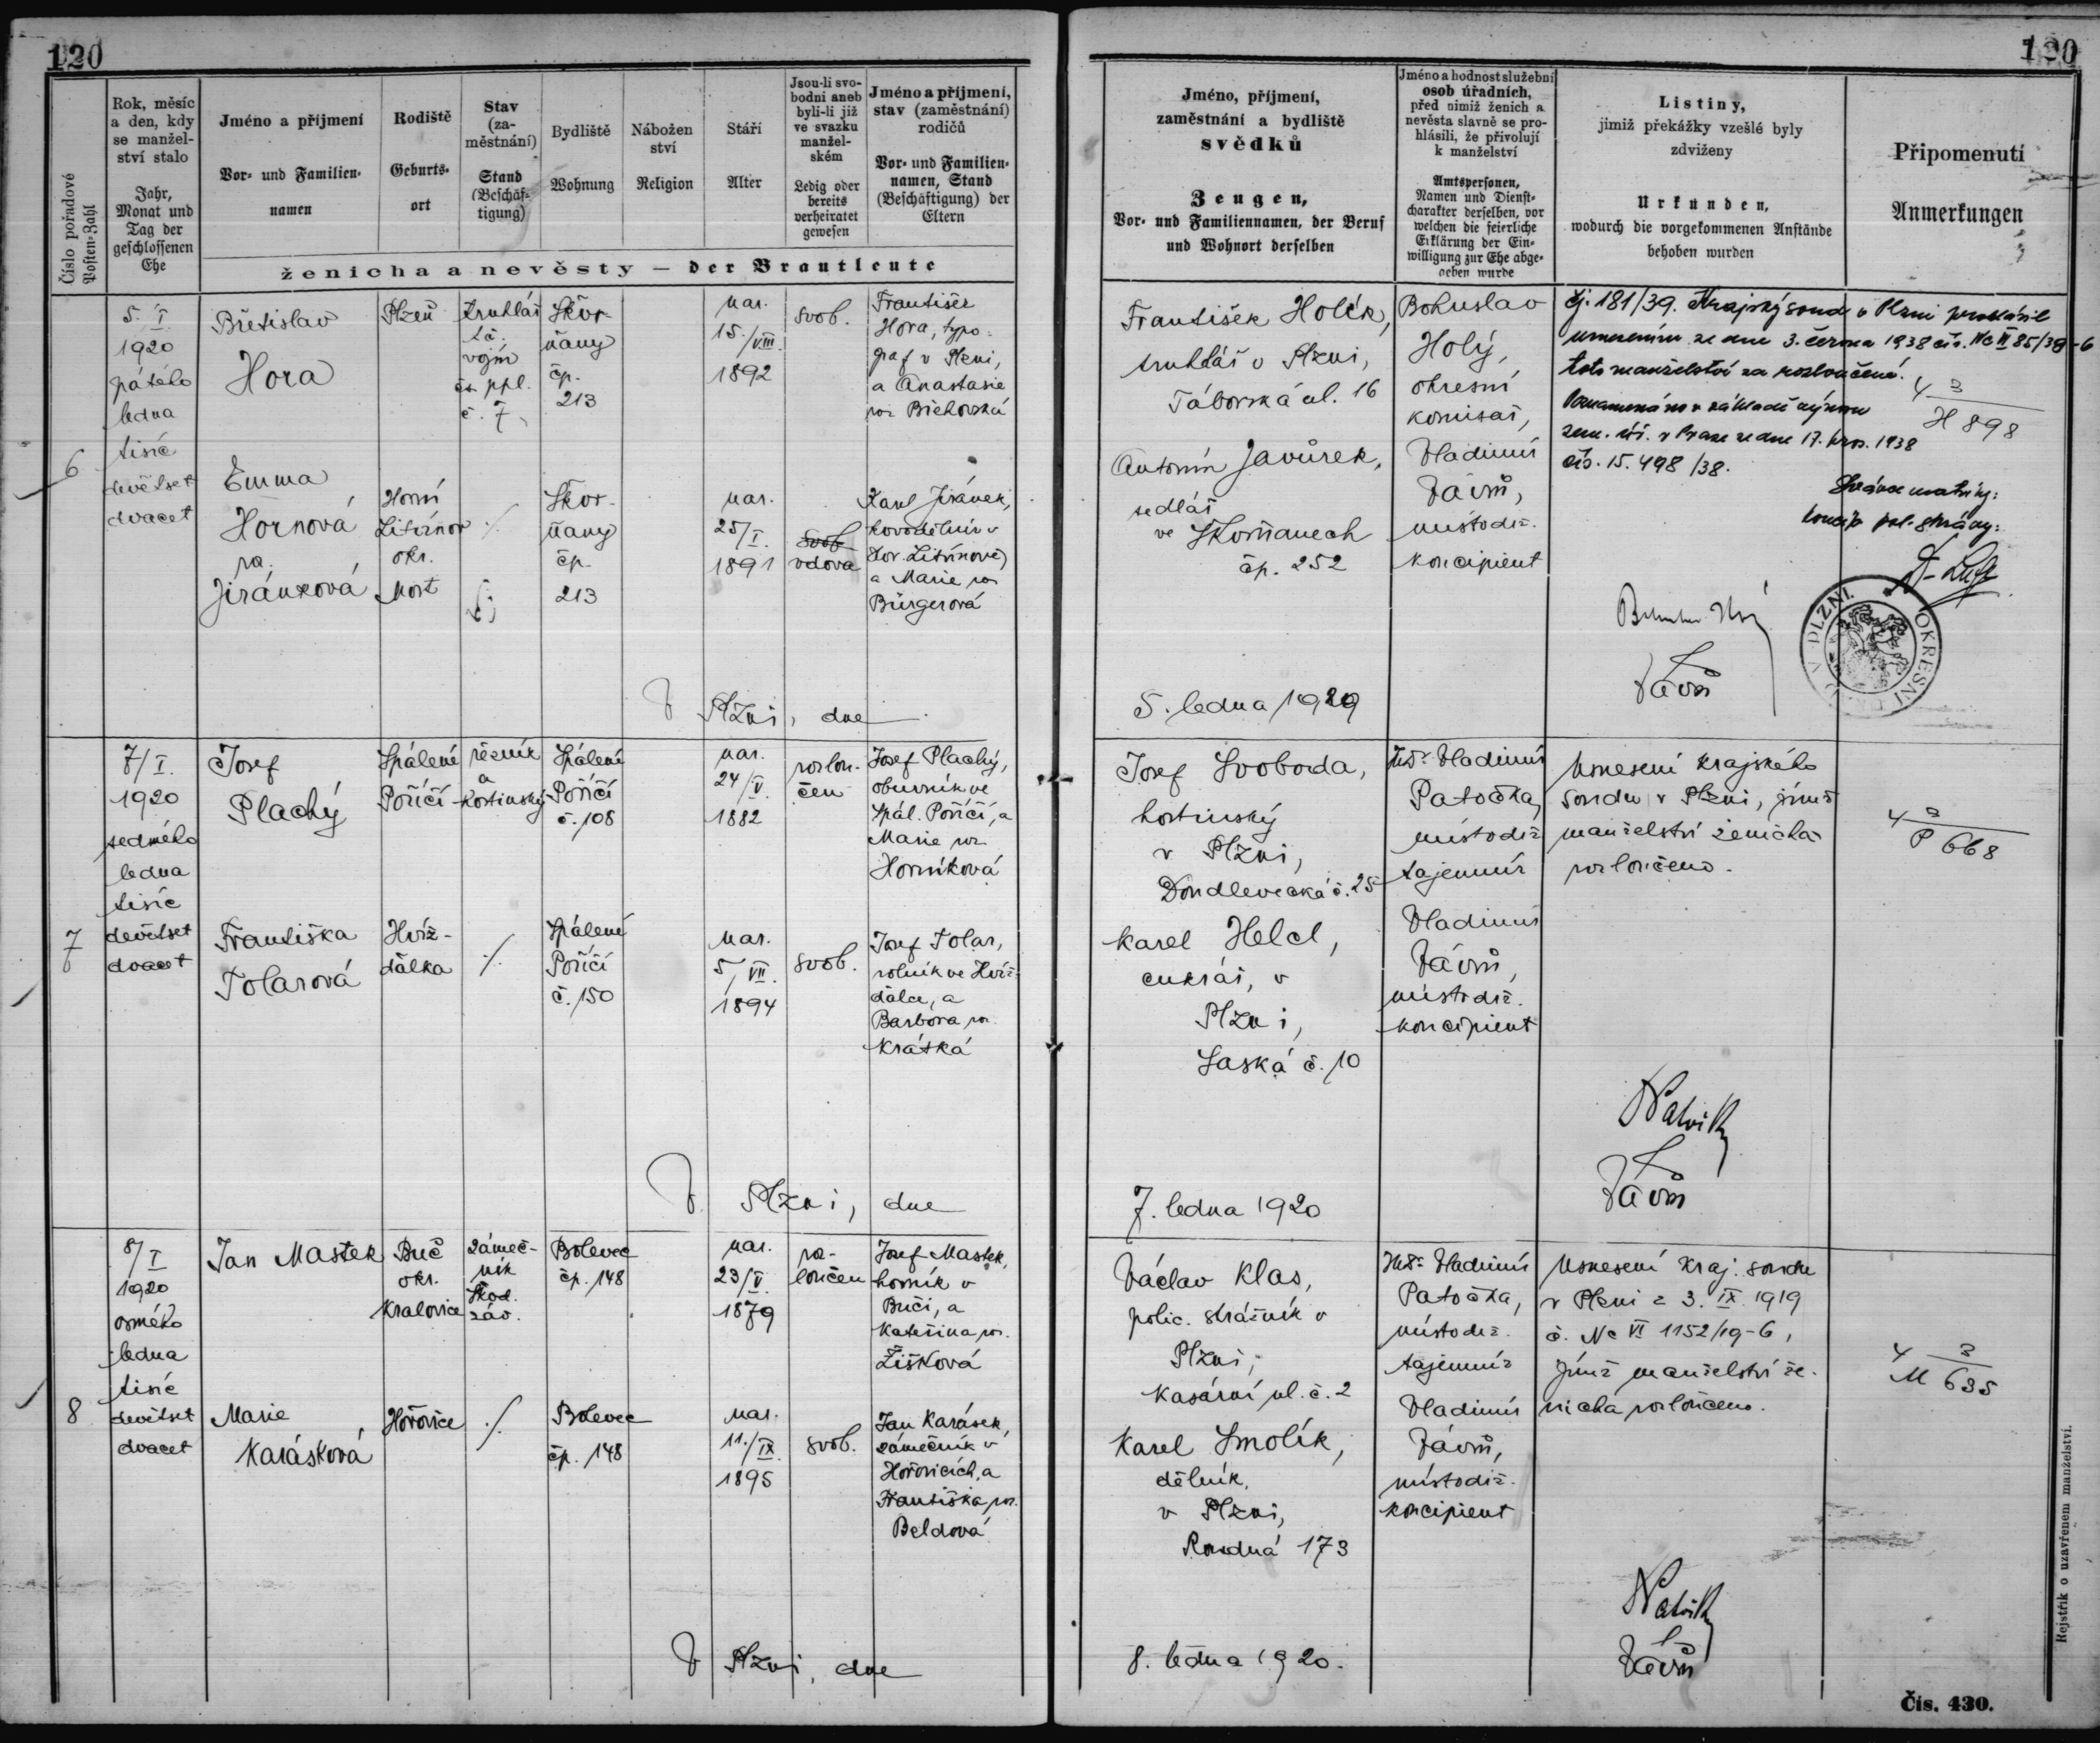 120
120
Číslo pořadové
Posten-Zahl
Rok, měsíc
a den, kdy
se manžel-
ství stalo
Jahr,
Monat und
Tag der
geschlossenen
Ehe
Jméno a příjmení
Vor- und Familien-
namen
Rodiště
Geburts-
ort
Stav
(za-
městnání)
Stand
(Beschäf-
tigung)
Bydliště
Wohnung
Nábožen
ství
Religion
Stáří
Alter
Jsou-li svo-
bodni aneb
byli-li již
ve svazku
manžel-
ském
Ledig oder
bereits
verheiratet
gewesen
Jméno a příjmení,
stav (zaměstnání)
rodičů
Vor- und Familien-
namen, Stand
(Beschäftigung) der
Eltern
ženicha a nevěsty — der Brautleute
Jméno, příjmení,
zaměstnání a bydliště
svědků
Zeugen,
Vor- und Familiennamen, der Beruf
und Wohnort derselben
Jméno a hodnost služební
osob úřadních,
před nimiž ženich a
nevěsta slavně se pro-
hlásili, že přivolují
k manželství
Amtspersonen,
Namen und Dienst-
charakter derselben, vor
welchen die feierliche
Erklärung der Ein-
willigung zur Ehe abge-
geben wurde
Listiny,
jimiž překážky vzešlé byly
zdviženy
Urkunden,
wodurch die vorgekommenen Anstände
behoben wurden
Připomenutí
Anmerkungen
6
5. I.
1920
pátého
ledna
tisíc
devětset
dvacet
Břetislav
Hora
Plzeň
truhlář
t.č.
vojín
čs. ppl.
č. 7
Škvr-
ňany
čp.
213
nar.
15./VIII.
1892
svob.
František
Hora, typo-
graf v Plzni,
a Anastasie
roz.
Emma
Hornová
roz.
Jiránková
Horní
Litvínov
okr.
Most
./.
Škvr-
ňany
čp.
213
nar.
25/I.
1891
svob.
vdova
Karel Jiránek,
kovodělník v
Hor. Litvínově
a Marie roz.
Bürgerová
František Holík,
truhlář v Plzni,
Táborská ul. 16
Antonín Javůrek,
sedlář
ve Škvrňanech
čp. 252
Bohuslav
Holý,
okresní
komisař,
Vladimír
Vávrů,
místodrž.
koncipient
čj. 181/39. Krajský soud v Plzni prohlásil
usnesením ze dne 3. června 1938 čís. Nc VI 85/38-6
toto manželství za rozloučené.
Poznamenáno v základě výnosu
zem. úř. v Praze ze dne 17. pros. 1938
čís. 15.498/38.
Správce matriky:
4 3
H 898
V PLZNI. OKRESNÍ
Vávrů
V Plzni, dne
5. ledna 1920
7
7/I.
1920
sedmého
ledna
tisíc
devětset
dvacet
Josef
Plachý
Spálené
Poříčí
řezník
a
hostinský
Spálené
Poříčí
č. 108
nar.
24/V.
1882
rozlou-
čen
Josef Plachý,
obuvník ve
Spál. Poříčí, a
Marie roz.
Horníková
Františka
Tolarová
Hvíž-
ďálka
./.
Spálené
Poříčí
č. 150
nar.
5/VII.
1894
svob.
Josef Tolar,
rolník ve Hvíž-
ďálce, a
Barbora roz.
Krátká
Josef Svoboda,
hostinský
v Plzni,
Doudlevecká č. 25
Karel Helcl,
cukrář, v
Plzni,
Saská č. 10
JUDr. Vladimír
Patočka,
místodrž.
tajemník
Vladimír
Vávrů,
místodrž.
koncipient
Usnesení krajského
soudu v Plzni, jímž
manželství ženicha
rozloučeno.
4 3
P 668
Vávrů
V Plzni, dne
7. ledna 1920
8
8/I
1920
osmého
ledna
tisíc
devětset
dvacet
Jan Mašek
Buč
okr.
Kralovice
zámeč-
ník
Škod.
záv.
Bolevec
čp. 148
nar.
23/V.
1879
roz-
loučen
Josef Mašek,
horník v
Buči, a
Kateřina roz.
Žišková
Marie
Karásková
Hořovice
./.
Bolevec
čp. 148
nar.
11./IX.
1895
svob.
Jan Karásek,
zámečník v
Hořovicích, a
Františka roz.
Beldová
Václav Klas,
polic. strážník v
Plzni,
Kasární ul. č. 2
Karel Smolík,
dělník,
v Plzni,
Roudná 173
JUDr. Vladimír
Patočka,
místodrž.
tajemník
Vladimír
Vávrů,
místodrž.
koncipient
Usnesení kraj. soudu
v Plzni z 3. IX. 1919
č. Nc VI 1152/19-6,
jímž manželství že-
nicha rozloučeno.
4 3
M 635
Vávrů
V Plzni, dne
8. ledna 1920.
Rejstřík o uzavřenem manželství.
Čís. 430.